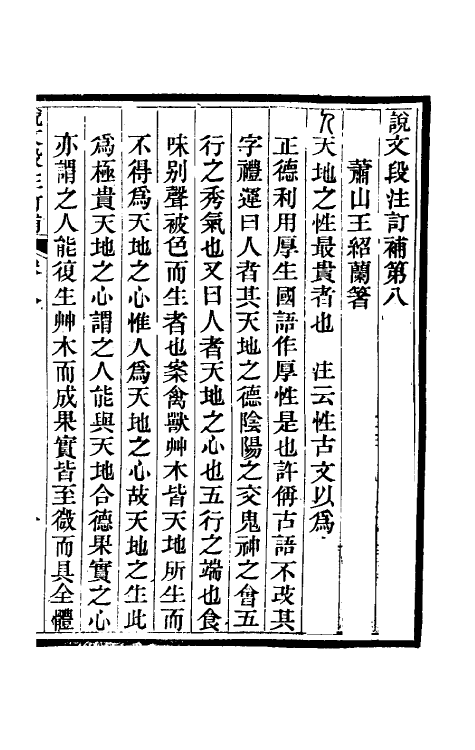 說文段注訂補第八
蕭山王紹蘭箸
𠆢天地之性最貴者也　注云性古文以爲
正德利用厚生國語作厚性是也許偁古語不改其
字禮運曰人者其天地之德陰陽之交鬼神之會五
行之秀氣也又曰人者天地之心也五行之端也食
味別聲被色而生者也案禽獸艸木皆天地所生而
不得爲天地之心惟人爲天地之心故天地之生此
爲極貴天地之心謂之人能與天地合德果實之心
亦謂之人能復生艸木而成果實皆至微而具全體
說文段注訂補